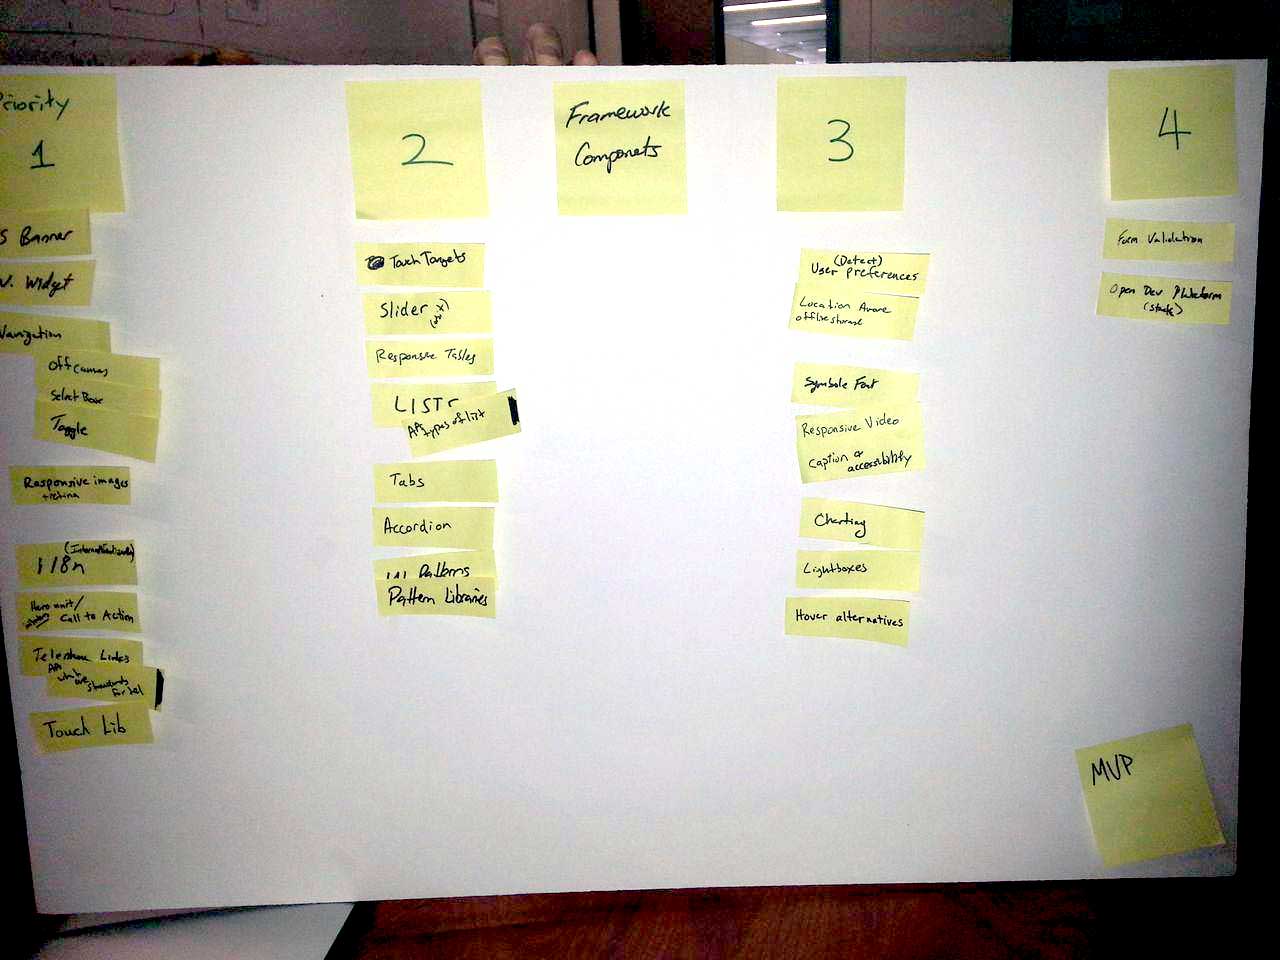 Priority
1
S Banner
Widget
Navigation
Off Canvas
Select Box
Toggle
Responsive images
+retina
(Internationalization)
I18n
Hero unit/
Call to Action
Telephone Links
API
what
are
standards
for tel
Touch Lib
2
Touch Targets
Slider
Responsive Tables
LIST
types of list
Tabs
Accordion
UI Patterns
Pattern Libraries
Framework
Componets
3
(Detect)
User preferences
Location Aware
offline storage
Symbole Font
Responsive Video
Caption &
accessibility
Charting
Lightboxes
Hover alternatives
4
Form Validation
Open Dev Plateform
(stack)
MVP